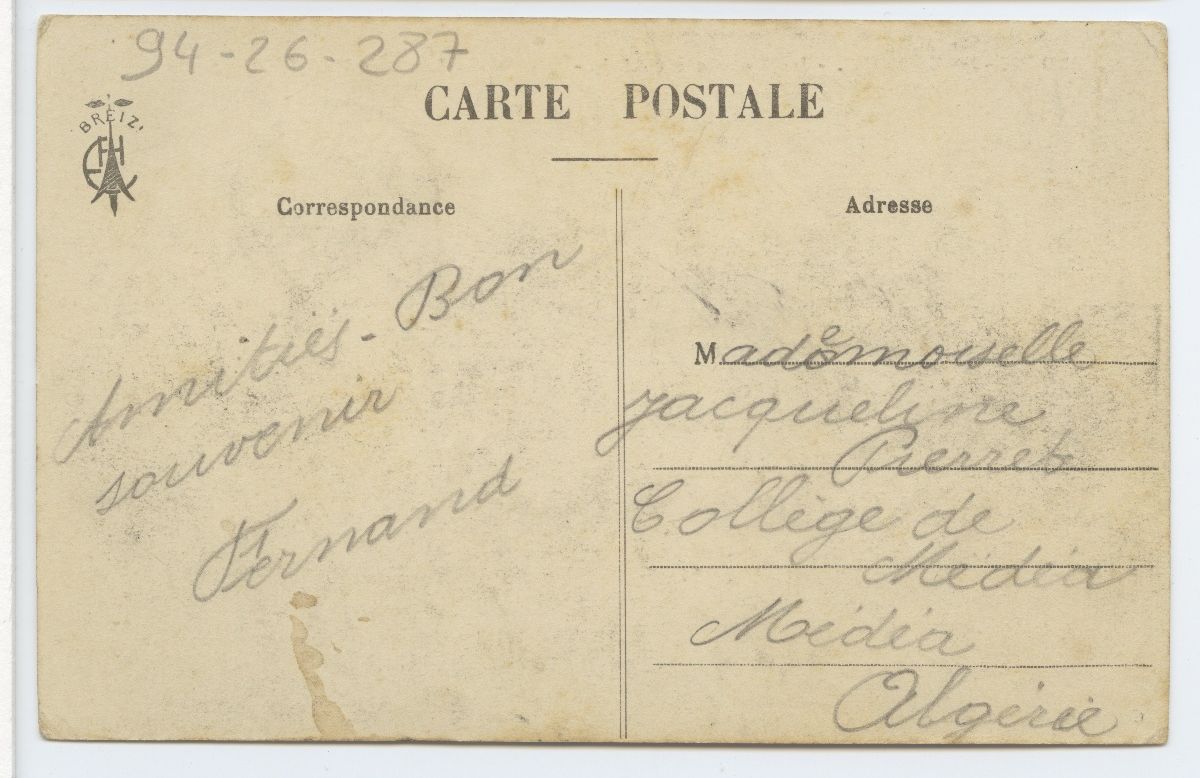 94-26-287
BREIZ
CARTE POSTALE
Correspondance
Amitiés - Bon
souvenir
Fernand
Adresse
Mademoiselle
Jacqueline
Pierret
Collège de
Médéa
Médéa
Algérie